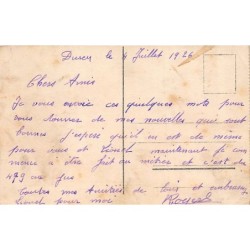 Duren le 4 Juillet 1926
Chers Amis
Je vous envoie ces quelques mots pour
vous donner de mes nouvelles qui sont
bonnes j'espère qu'il en est de même
pour vous et Lionel maintenant je com
mence a être fait au métier et c'est du
479 au jus
Toutes mes Amitiés de loin et embrassez
Lionel pour moi